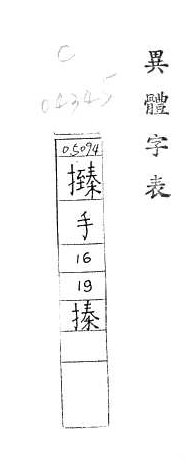 異體字表
C
04345
05094
手
16
19
搸